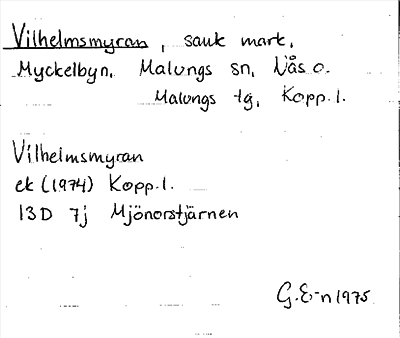 Vilhelmsmyran, sank mark,
Myckelbyn, Malungs sn, Nås o.
Malungs tg, Kopp.l.
Vilhelmsmyran
ek (1974) Kopp.l.
13D 7j Mjönorstjärnen
G.E-n 1975